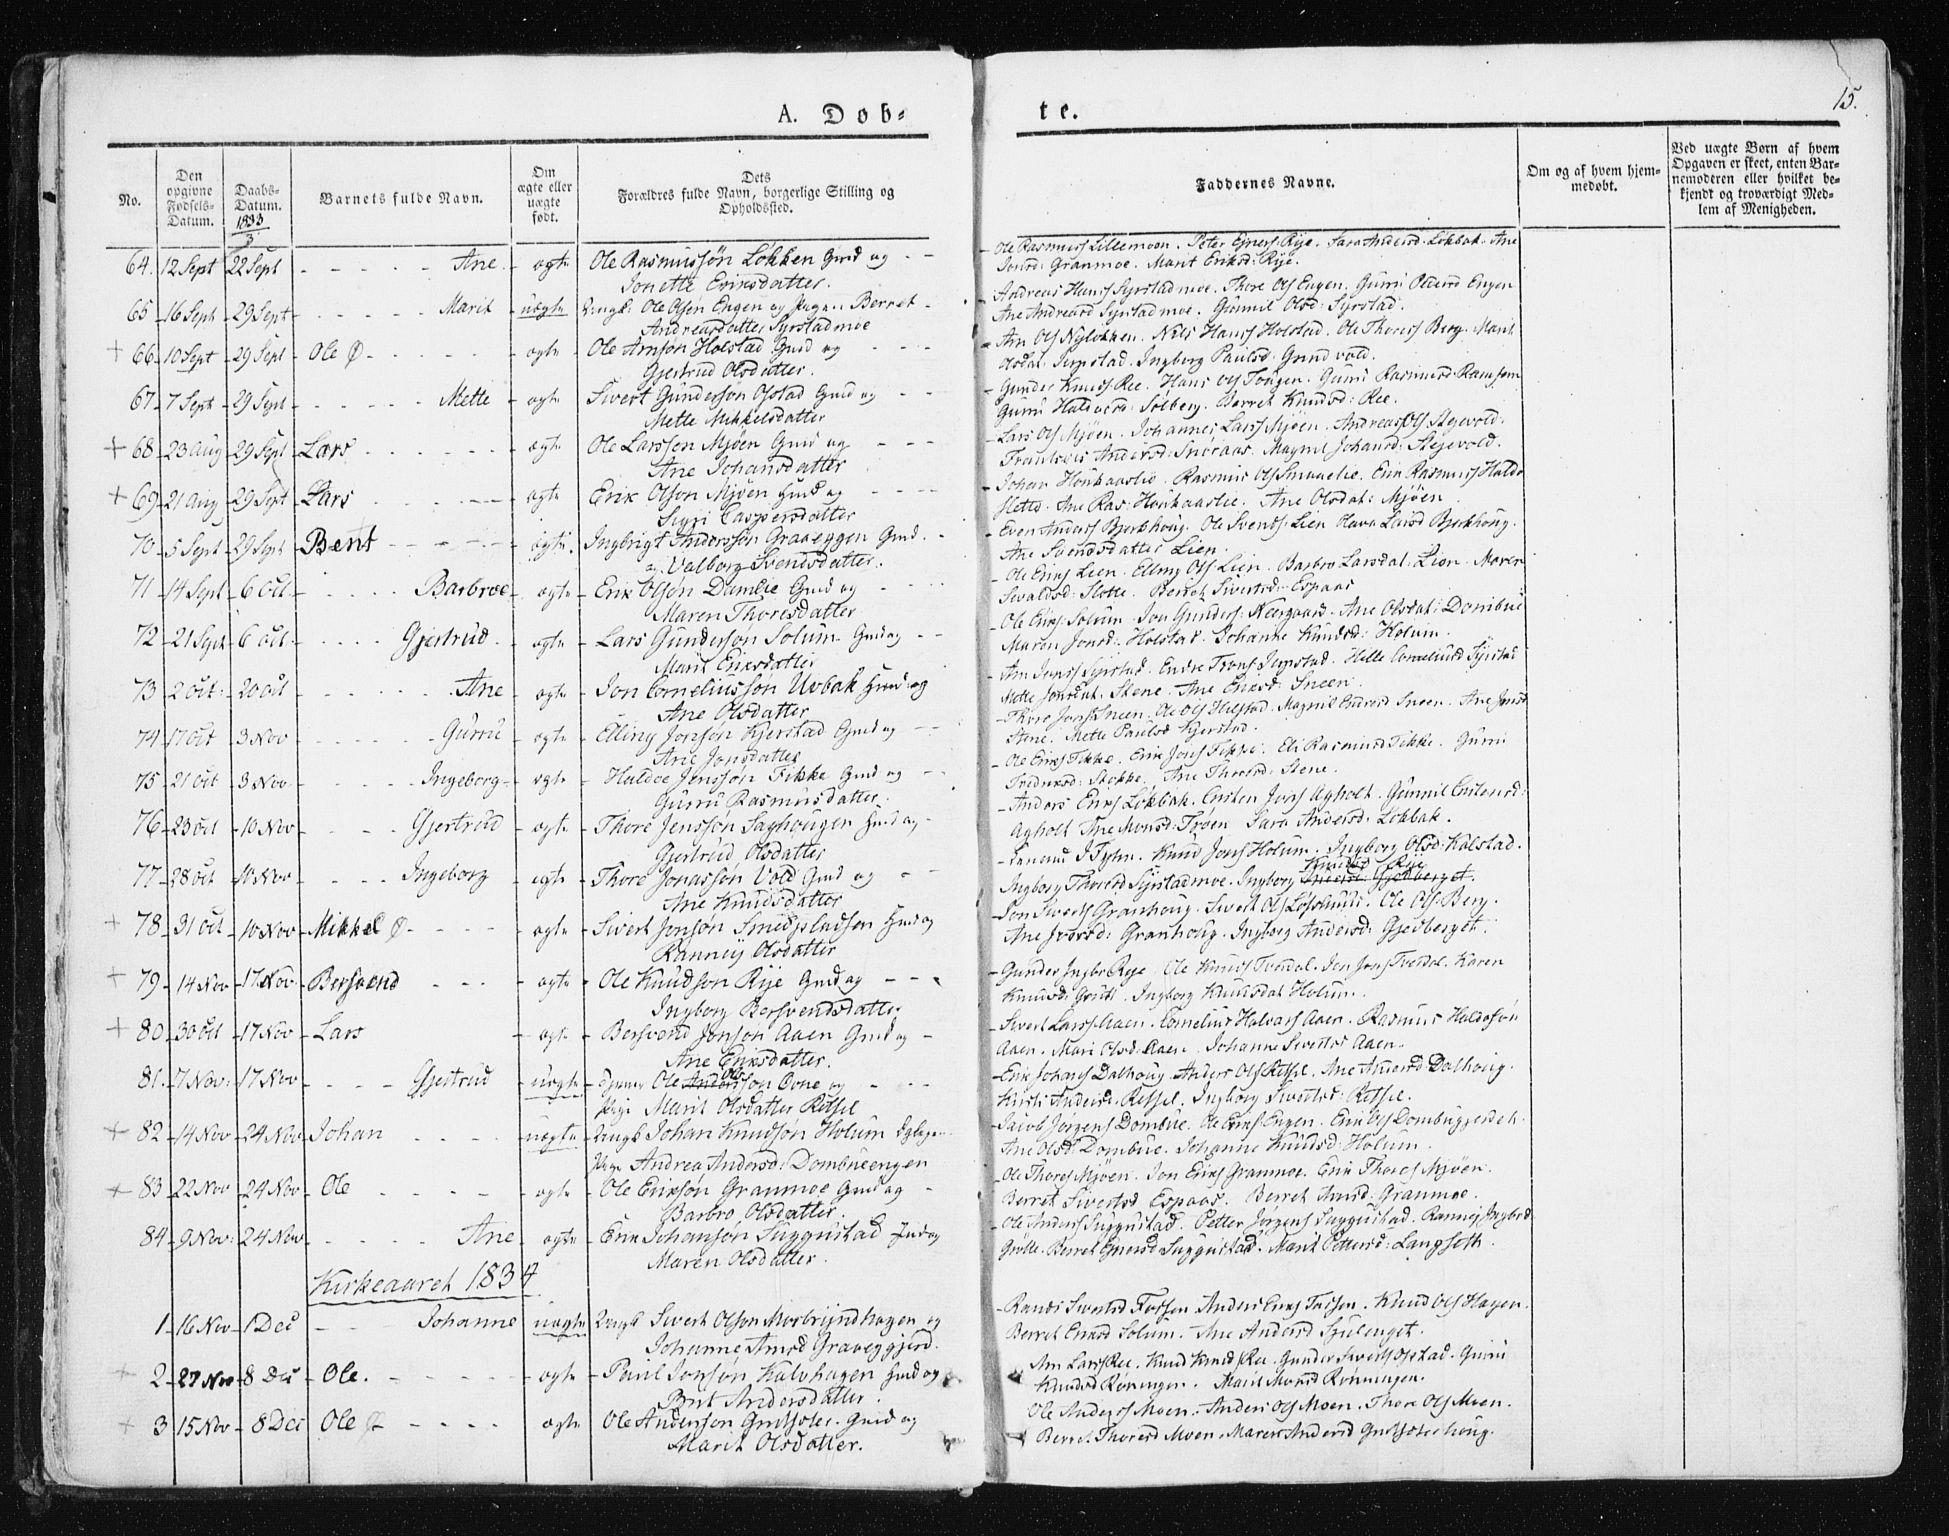 15.
A. Døb-
te.
No.
Den opgivne Fødsels-Datum.
Daabs-Datum.
1833
Barnets fulde Navn.
Om ægte eller uægte født.
Dets Forældres fulde Navn, borgerlige Stilling og Opholdssted.
Faddernes Navne.
Om og af hvem hjem-medøbt.
Ved uægte Børn af hvem Opgaven er skeet, enten Bar-nemoderen eller hvilket be-kjendt og troværdigt Med-lem af Menigheden.
64. 12 Sept 22 Sept Ane ægte Ole Rasmussøn Løkken Gmd og
Jonette Eriksdatter.
Ole Rasmuss Lillemoen. Peter Ejners Rije. Sara Andersd Løkbak. Ane
Jonsd: Granmoe. Marit Eriksd: Rije.
65 16 Sept 29 Sept Marit uægte Ungk: Ole Olsøn Engen og Pige Berret
Andreasdatter Syrstadmoe
Andreas Hanss Syrstadmoe. Thore Ols Engen. Gurru Pedersd Engen
Ane Andreasd Syrstadmoe. Gunnil Olsd: Syrstad.
+ 66 10 Sept 29 Sept Ole Ø ægte Ole Arnsøn Holstad Gmd og
Gjertrud Olsdatter.
Arn Ols Nyløkken. Nils Hanss Holstad. Ole Thoress Berg. Marit
Olsdat: Jerpstad. Ingborg Paulsd. Grindvold.
67 7 Sept 29 Sept Mette ægte Sivert Gundersøn Opstad Gmd og
Mette Mikkelsdatter
Gunder Knuds Ree. Hans Ols Tongen. Gurru Rasmusd Ramsem
Gurru Haldorsd: Solberg. Berret Knudsd: Ree.
+ 68 23 Aug 29 Sept Lars ægte Ole Larssen Mjøen Gmd og
Ane Johansdatter
Lars Ols Mjøen. Johannes Larss Mjøen. Andreas Ols Stejevold.
Andersd: Sneraas. Magnil Johansd: Stejevold.
+ 69 21 Aug 29 Sept Lars ægte Erik Olsøn Mjøen Huusd og
Sigri Caspersdatter
Johan Honkaaslie. Rasmus Ols Erik Rasmuss
Slette. Ane Ras: Honkaaslie. Ane Olsdat: Mjøen.
70 5 Sept 29 Sept Bent ægte Ingbrigt Anderssøn Graveygen Gmd.
og Valborg Svendsdatter.
Even Anders Bjerkhoug. Ole Svends: Lien Hava Larsd Bjerkhoug.
Ane Svendsdatter Lien.
71 14 Sept 6 Oct Barbroe ægte Erik Olsøn Damlie Gmd og
Maren Thoresdatter
Ole Eriks Lien. Elling Ols Lien. Barbro Larsdat. Lien. Maren
Sivaldsd: Slette. Berret Sivertsd: Espaas
72 21 Sept 6 Oct Gjertrud ægte Lars Gundersøn Solum Gmd og
Marit Eriksdatter
Ole Eriks: Solum. Jon Gunders: Neergaard. Ane Olsdat: Dombue
Maren Jonsd: Holstad. Johanne Knudsd: Holum.
73 2 Oct 20 Oct Ane ægte Jon Corneliussøn Uvbak Huusd og
Ane Olsdatter
Arn Jonss Syrstad. Endre Jerpstad. Helle Corneliusd Syrstad
Mette Jonsdat. Stene. Ane Eriksd: Sneen.
74 17 Oct 3 Nov Gurru ægte Elling Jonsøn Kjerstad Gmd og
Ane Jonsdatter
Thore Jons Sneen. Ole Ols Holstad. Magnil Endresd Sneen. Ane Jonsd
Stene. Mette Paulsd Kjerstad.
75 21 Oct 3 Nov Ingeborg ægte Haldoe Jonssøn Fikke Gmd og
Gurru Rasmusdatter.
Ole Eriks Fikke. Erik Jons Fikke. Eli Rasmusd Fikke. Gurru
Frederiksd: Stokke. Ane Thoresd: Stene.
76 23 Oct 10 Nov Gjertrud ægte Thore Jenssøn Saghougen Huusd og
Gjertrud Olsdatter
Anders Eriks Løkbak. Cristen Jons Agholt. Gunnil Cristensd:
Agholt Ane Monsd: Trøen Sara Andersd: Løkbak.
77 28 Oct 10 Nov Ingeborg ægte Thore Jonassøn Vold Gmd og
Ane Knudsdatter
Knud Jons Holum. Ingborg Olsd: Holstad.
Knudsd Rije
Ingborg Thoresd Syrstadmoe. Ingborg Gjedberget.
+ 78 31 Oct 10 Nov Mikkel Ø ægte Sivert Jonsøn Smedspladsen Huusd og
Ranney Olsdatter
Jon Siverts Granhoug. Sivert Ols Ole Ols Berg.
Ane Iversd: Granhoug. Ingborg Andersd: Gjedberget.
+ 79 14 Nov 17 Nov Bersvend ægte Ole Knudsøn Rije Gmd og
Ingborg Bersvendsdatter
Gunder Ingbr Rije. Ole Knuds Tverdal. Jon Jons Tverdal. Karen
Knudsd: Grutt. Ingborg Knudsdat Holum.
+ 80 30 Oct 17 Nov Lars ægte Bersvend Jonsøn Aaen Gmd og
Ane Eriksdatter.
Sivert Larss Aaen. Cornelius Halvors Aaen. Rasmus Haldosøn
Aaen. Mari Olsd: Aaen. Johanne Sivertsd Aaen.
81. 7 Nov: 17 Nov Gjertrud uægte Ole Anderssøn Ols Oone og
Pige Marit Olsdatter Ressel
Erik Johans Dalhoug. Anders Ols Ressel. Ane Andersd Dalhoug.
Kirsti Andersd: Ressel. Ingborg Sivertsd: Ressel.
+ 82 14 Nov 24 Nov Johan uægte Ungk Johan Knudsøn Holum
Pige Andrea Andersd: Dombueengen
Jacob Jørgens Dombue. Ole Eriks: Engen. Erik Ols Dombuggjerdet.
Ane Olsd: Dombue. Johanne Knudsd: Holum.
+ 83 22 Nov 24 Nov Ole ægte Ole Eriksøn Granmoe Gmd og
Barbro Olsdatter.
Ole Thores Mjøen. Jon Eriks Granmoe. Erik Thores Mjøen.
Berret Sivertsd Espaas. Berret Arnsd: Granmoe.
84 9 Nov: 24 Nov Ane ægte Erik Johansøn Suggustad Indog
Maren Olsdatter.
Ole Anders Suggustad. Petter Jørgens Suggustad. Ranney Ingbrd
Grøtte. Berret Ejnersd Suggustad. Marit Pettersd: Langseth.
Kirkeaaret 1834
1 16 Nov 1 Dec Johanne uægte Ungk Sivert Olsøn Morbryndhagen og
Johanne Arnsd Graveggjerd.
Randi Sivertsd Fossen. Anders Eriks Fossen. Knud Ols Hagen.
Berret Eriksd Solum. Ane Andersd
+ 2 27 Nov 8 Dec Ole. ægte Poul Jonsøn Kalvhagen Huusd og
Brit Andersdatter.
Arn Larss Ree. Knud Knuds Ree. Gunder Siverts Opstad. Gurru
Knudsd Røningen. Marit Monsd Røningen.
+ 3 15 Nov 8 Dec Ole Ø ægte Ole Andersøn Gmd og
Marit Olsdatter.
Ole Anders Moen. Anders Ols Moen. Thore Ols Moen.
Berret Thoresd Moen. Maren Andersd